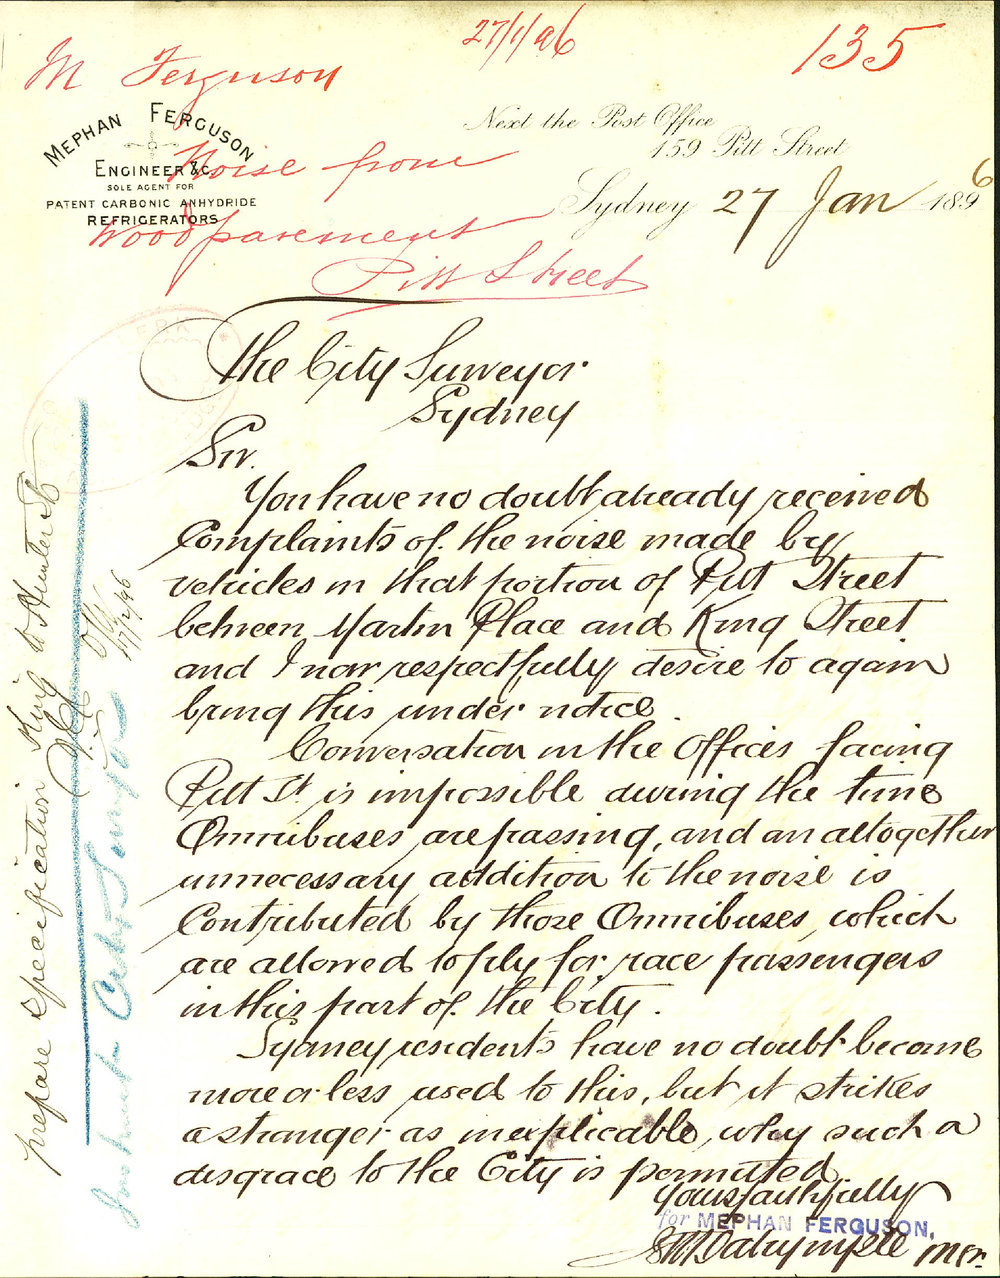 27/1/96
135
M Ferguson
Noise from
Wood pavement
Pitt Street
MEPHAN FERGUSON
ENGINEER &C
SOLE AGENT FOR
PATENT CARBONIC ANHYDRIDE
REFRIGERATORS
Next the Post Office
159 Pitt Street
Sydney 27 Jan 1896
The City Surveyor
Sydney
Sir.
You have no doubt already received
Complaints of the noise made by
vehicles in that portion of Pitt Street
between Martin Place and King Street
and I now respectfully desire to again
bring this under notice.
Conversation in the Offices facing
Pitt St. is impossible during the time
Omnibuses are passing, and an altogether
unnecessary addition to the noise is
Contributed by those Omnibuses, which
are allowed to ply for, race passengers
in this part of the City.
Sydney residents have no doubt become
more or less used to this, but it strikes
a stranger as inexplicable, why such a
disgrace to the City is permitted
Yours faithfully
for MEPHAN FERGUSON.
Dalrymple Mgr.
Prepare specification King to Hunter St
17/2/96
City Surveyor